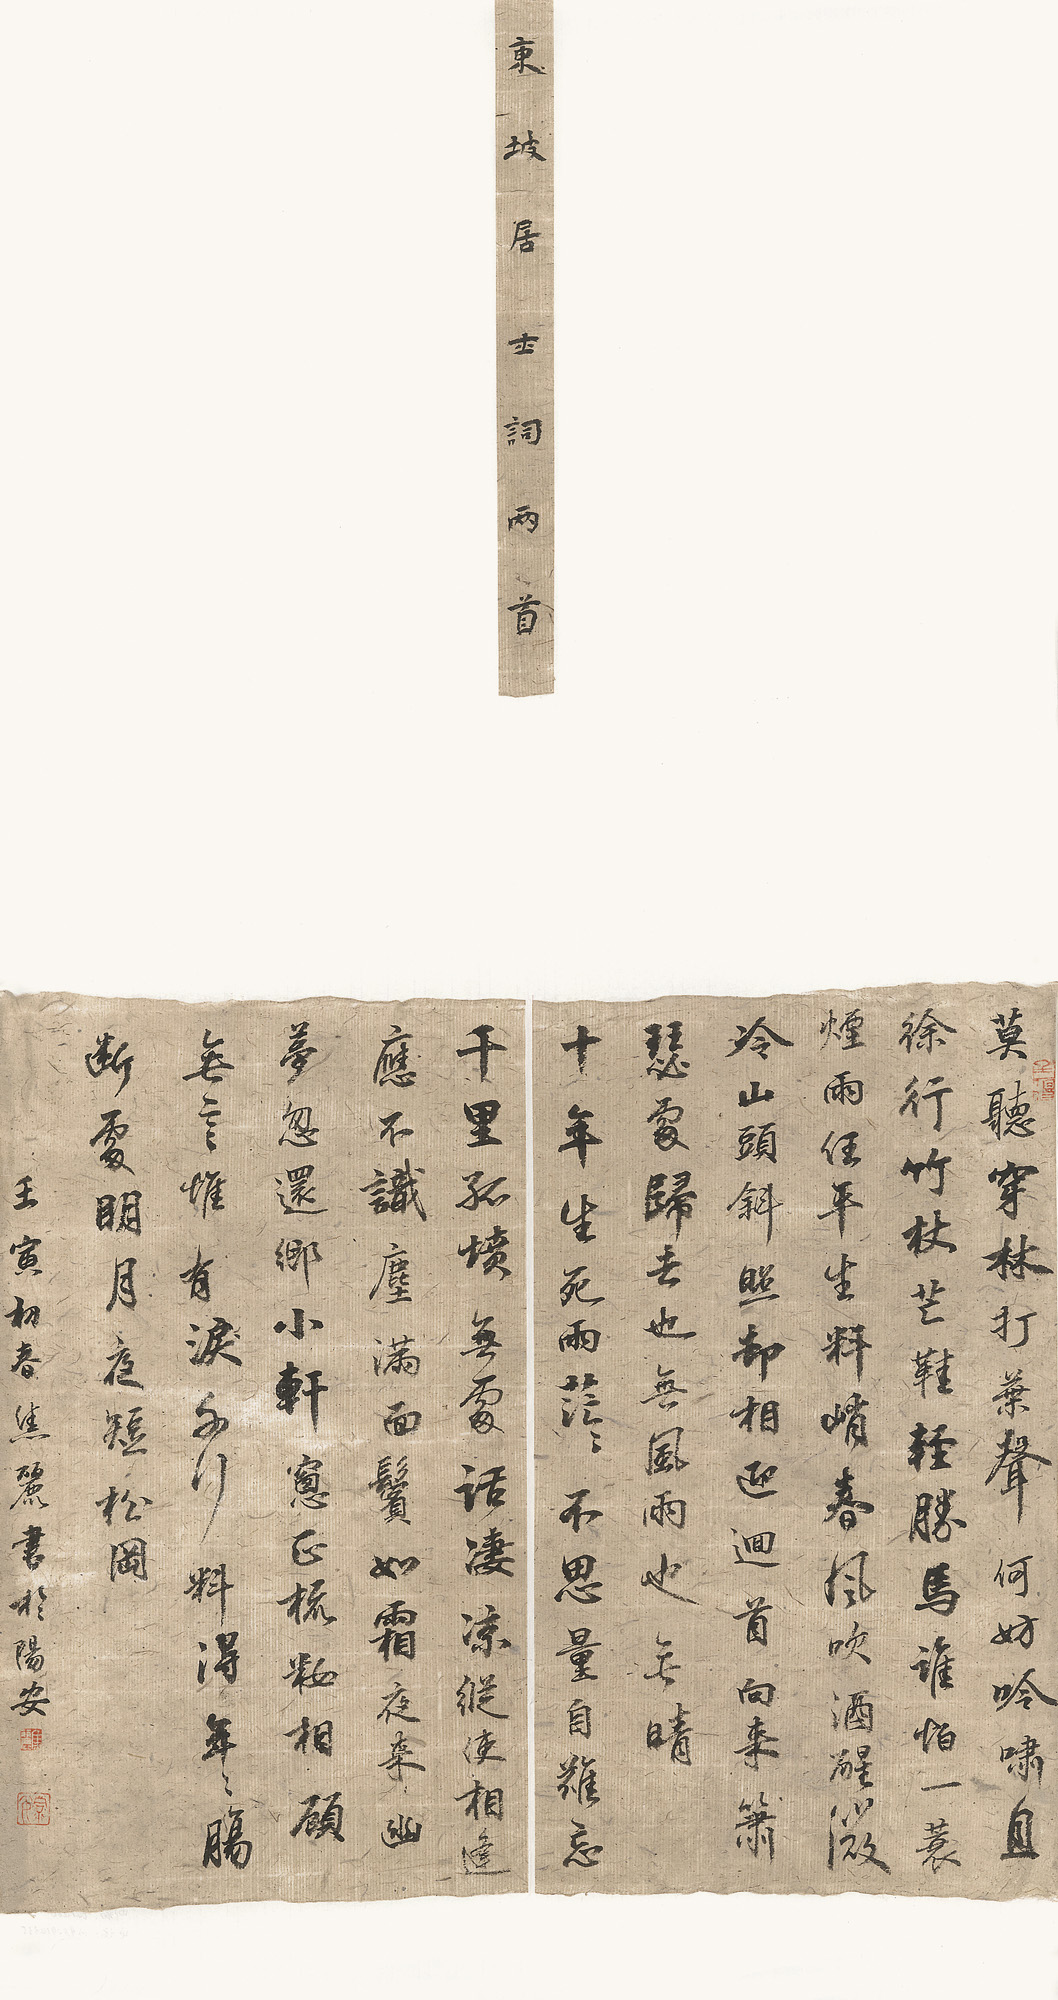 東坡居士詞兩首
莫聽穿林打葉聲何妨吟嘯且
徐行竹杖芒鞋輕勝馬誰怕一蓑
煙雨任平生料峭春風吹酒醒微
冷山頭斜照却相迎迴首向來簫
瑟處歸去也無風雨也無晴
十年生死兩茫〻不思量自難忘
千里孤墳無處話凄涼縱使相逢
應不識塵滿面鬢如霜夜來幽
夢忽還鄉小軒窻正梳妝相顧
無言惟有淚千行料得年〻腸
斷處明月夜短松岡
壬寅初春焦麗書於陽安